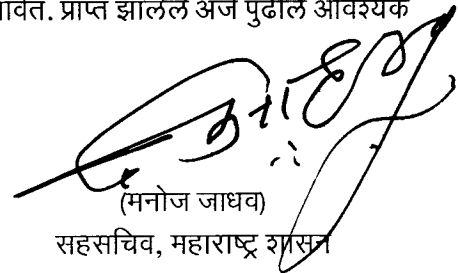 प्राप्त झालेले अर्ज पुढील आवश्यक
(मनोज जाधव)
सहसचिव, महाराष्ट्र शासन